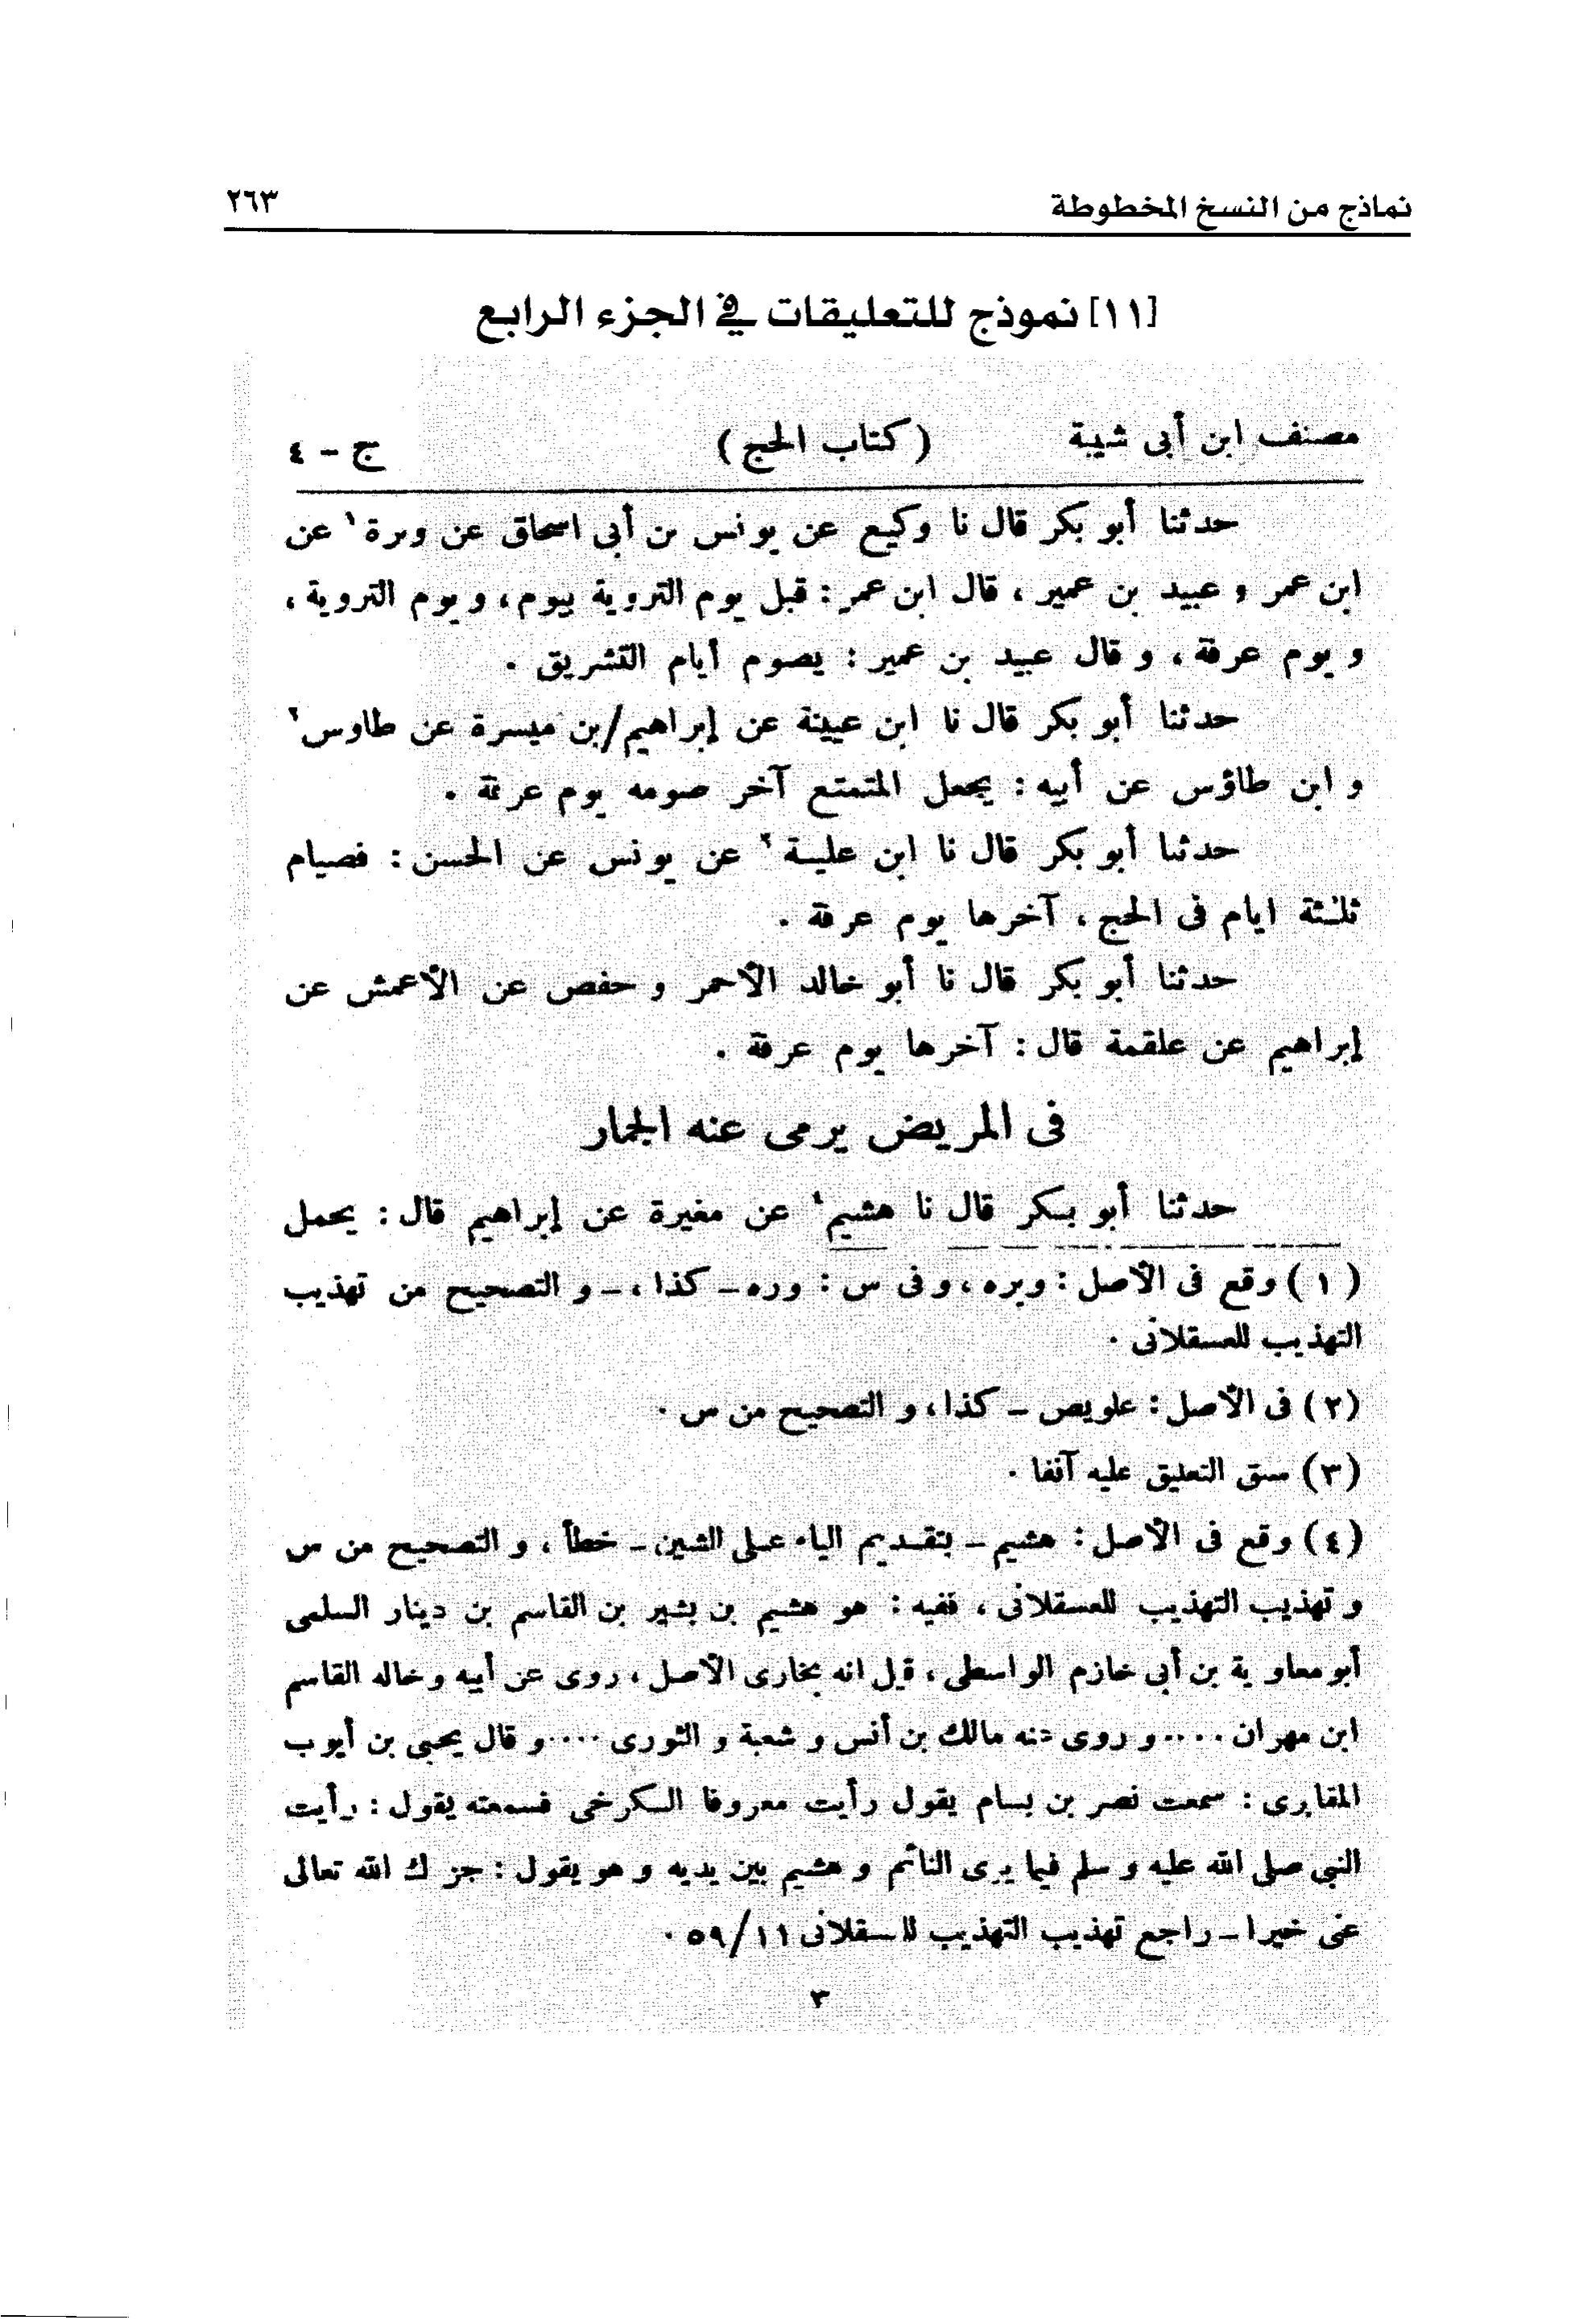 نماذج من النسخ المخطوطة ٢٦٣
[١١] نموذج للتعليقات في الجزء الرابع
مصنف ابن أبى شيبة (كتاب الحج) ج - ٤
حدثنا أبو بكر قال نا وكيع عن يونس بن أبى اسحاق عن وبرة١ عن
ابن عمر و عبيد بن عمير ، قال ابن عمر : قبل يوم التروية بيوم، و يوم التروية ،
و يوم عرفة ، و قال عبيد بن عمير : يصوم أيام التشريق .
حدثنا أبو بكر قال نا ابن عيينة عن إبراهيم/بن ميسرة عن طاوس٢
و ابن طاؤس عن أبيه : يجعل المتمتع آخر صومه يوم عرفة .
حدثنا أبو بكر قال نا ابن علية٣ عن يونس عن الحسن : فصيام
ثلثة ايام فى الحج ، آخرها يوم عرفة .
حدثنا أبو بكر قال نا أبو خالد الأحمر و حفص عن الأعمش عن
إبراهيم عن علقمة قال : آخرها يوم عرفة .
فى المريض يرمى عنه الجمار
حدثنا أبو بكر قال نا هشيم٤ عن مغيرة عن إبراهيم قال : يحمل
(١) وقع فى الأصل : وبره ، و فى س : وره - كذا ، - و التصحيح من تهذيب
التهذيب للعسقلانى .
(٢) فى الأصل : علويص - كذا ، و التصحيح من س .
(٣) سبق التعليق عليه آنفا .
(٤) وقع فى الأصل : هشيم - بتقديم الياء على الشين - خطأ ، و التصحيح من س
و تهذيب التهذيب للعسقلانى ، ففيه : هو هشيم بن بشير بن القاسم بن دينار السلمى
أبو معاوية بن أبى خازم الواسطى ، قيل انه بخارى الأصل ، روى عن أبيه و خاله القاسم
ابن مهران .... و روى عنه مالك بن أنس و شعبة و الثورى .... و قال يحيى بن أيوب
المقابرى : سمعت نصر بن بسام يقول رأيت معروفا الكرخى فسمعته يقول : رأيت
النبى صلى الله عليه و سلم فيما يرى النائم و هشيم بين يديه و هو يقول : جزاك الله تعالى
عنى خيرا - راجع تهذيب التهذيب للعسقلانى ١١/٥٩ .
٣